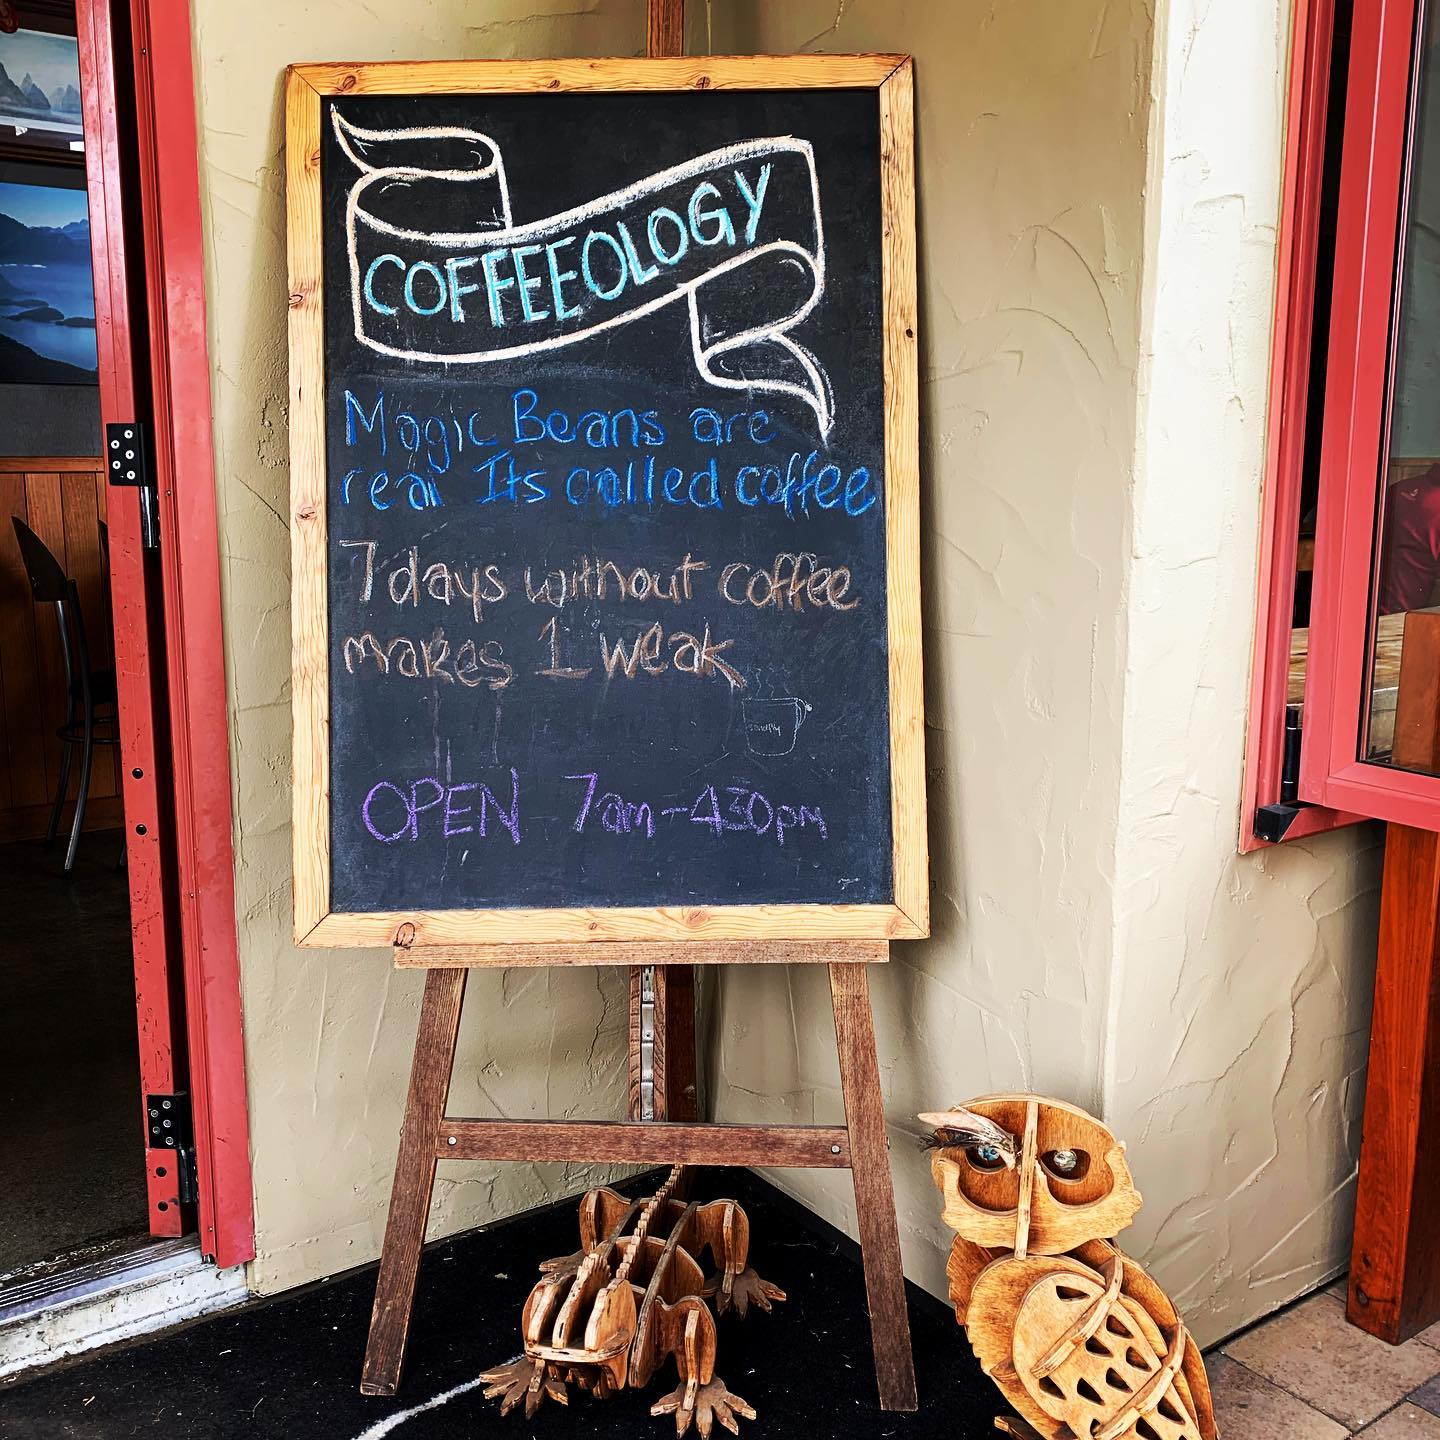 COFFEEOLOGY
Magic Beans are
real Its called coffee
7 days without coffee
makes 1 weak
OPEN 7am-430pm